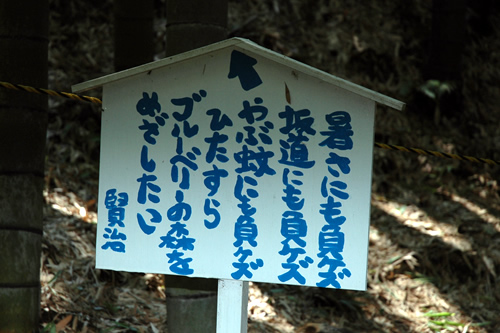 暑さにも負ケズ
坂道にも負ケズ
やぶ蚊にも負ケズ
ひたすら
ゴルーベリーの森を
めざしたい
賢治